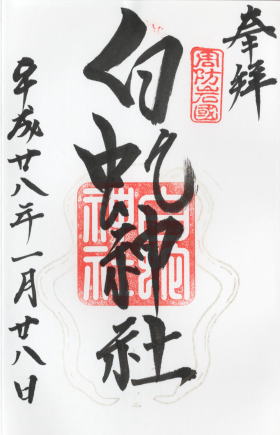 奉拝
周防岩國
白蛇神社
白蛇神社
平成廿八年一月廿八日